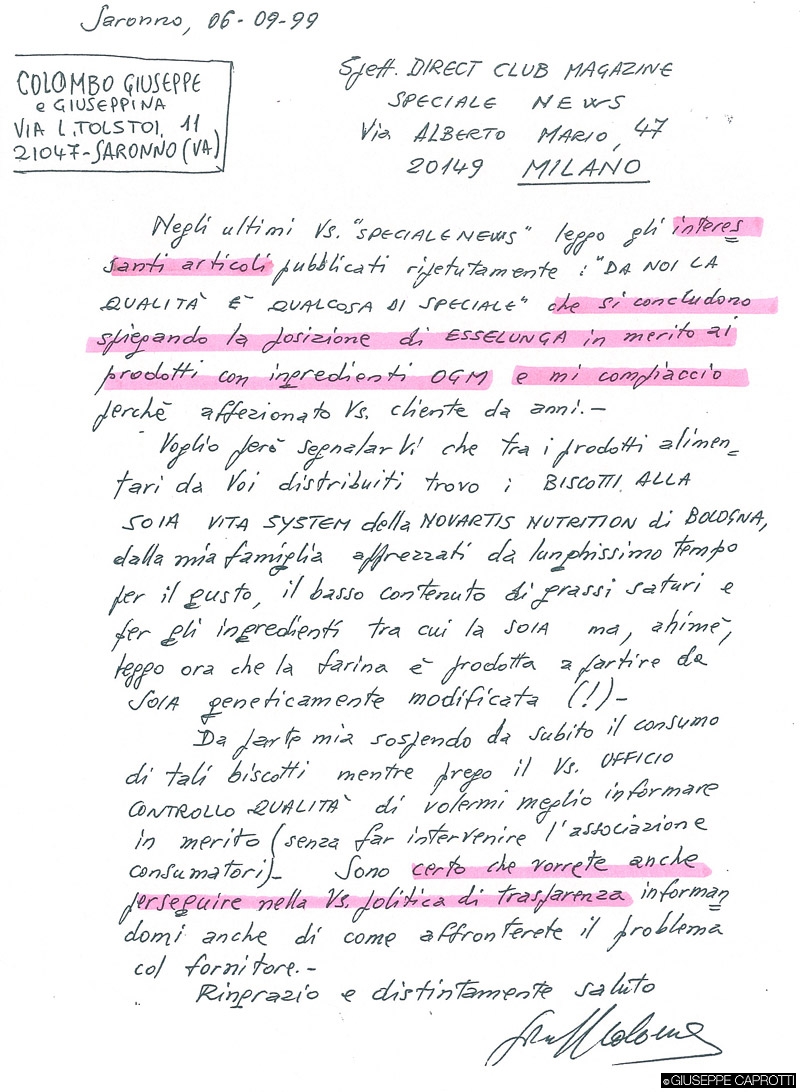 Saronno, 06-09-99
COLOMBO GIUSEPPE
e GIUSEPPINA
VIA L.TOLSTOI, 11
21047-SARONNO (VA)
Spett. DIRECT CLUB MAGAZINE
SPECIALE NEWS
Via ALBERTO MARIO, 47
20149 MILANO
Negli ultimi Vs. "SPECIALE NEWS" leggo gli interes=
santi articoli pubblicati ripetutamente: "DA NOI LA
QUALITÀ È QUALCOSA DI SPECIALE" che si concludono
spiegando la posizione di ESSELUNGA in merito ai
prodotti con ingredienti OGM e mi compiaccio
perchè affezionato Vs. cliente da anni.-
Voglio però segnalarVi che tra i prodotti alimen=
tari da Voi distribuiti trovo i BISCOTTI ALLA
SOIA VITA SYSTEM della NOVARTIS NUTRITION di BOLOGNA,
dalla mia famiglia apprezzati da lunghissimo tempo
per il gusto, il basso contenuto di grassi saturi e
per gli ingredienti tra cui la SOIA ma, ahimè,
leggo ora che la farina è prodotta a partire da
SOIA geneticamente modificata (!)-
Da parte mia sospendo da subito il consumo
di tali biscotti mentre prego il Vs. UFFICIO
CONTROLLO QUALITÀ di volermi meglio informare
in merito (senza far intervenire l'associazione
consumatori)- Sono certo che vorrete anche
perseguire nella Vs. politica di trasparenza informan=
domi anche di come affronterete il problema
col fornitore.-
Ringrazio e distintamente saluto
©GIUSEPPE CAPROTTI